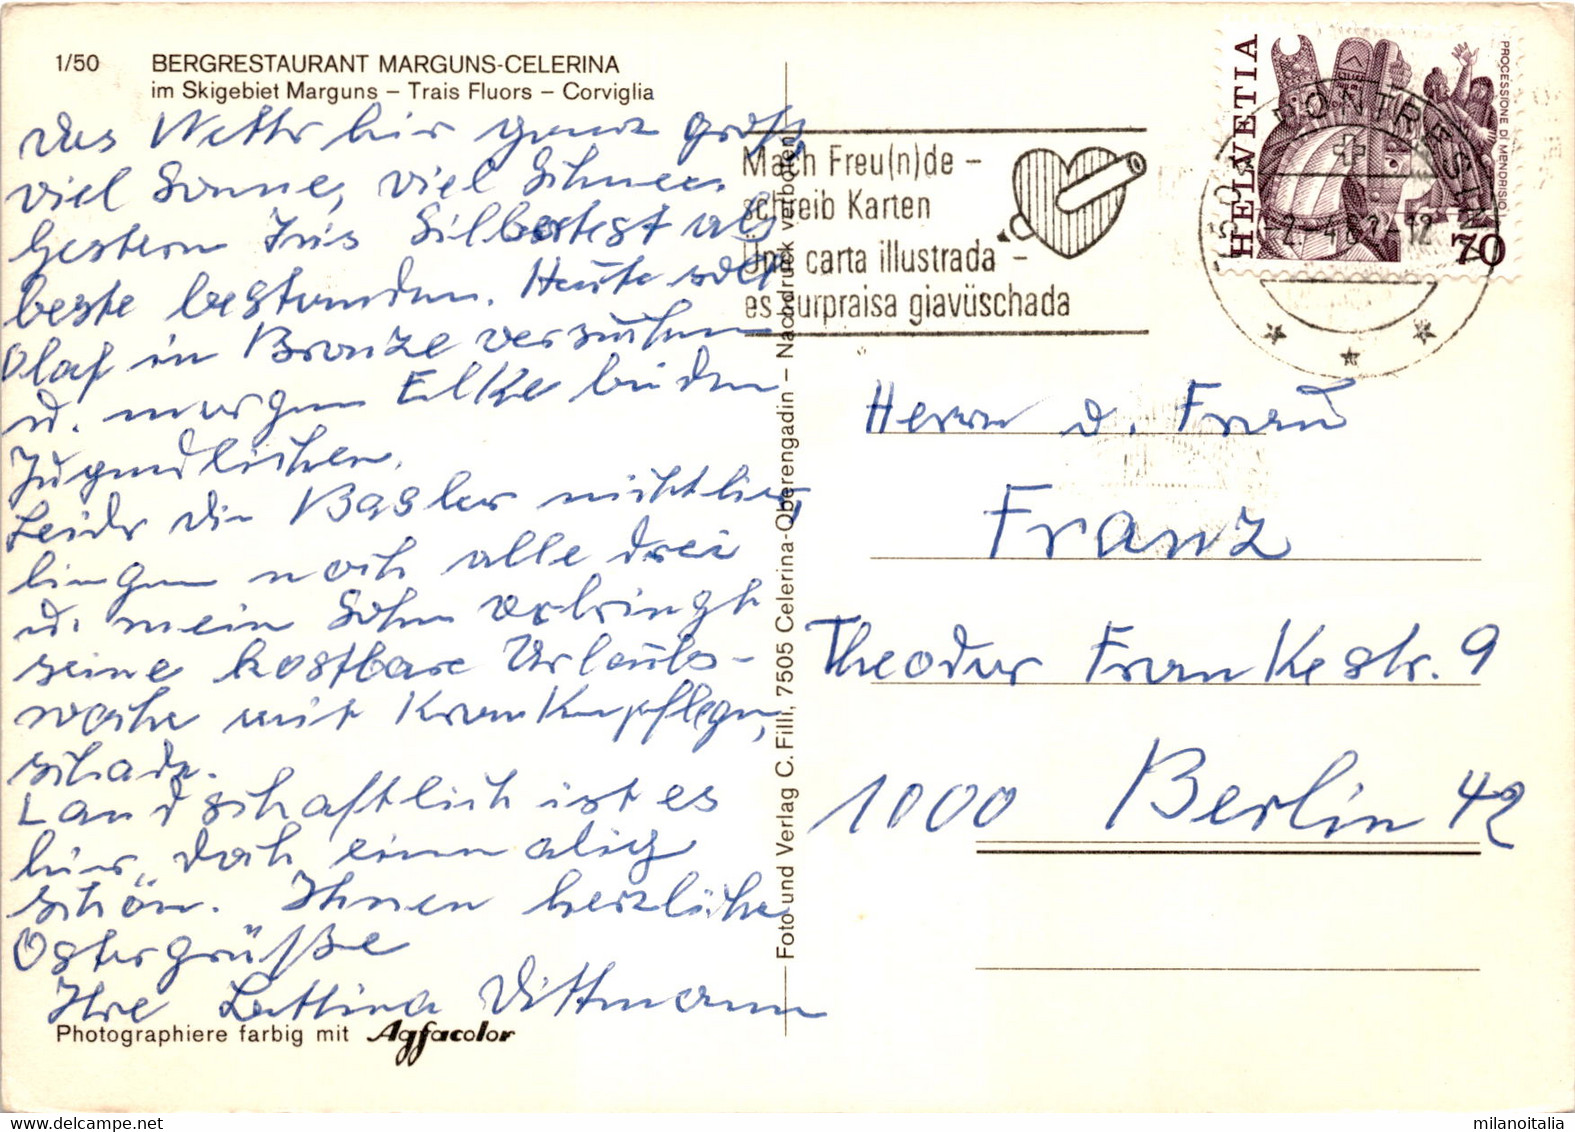 1/50 BERGRESTAURANT MARGUNS-CELERINA
im Skigebiet Marguns – Trais Fluors – Corviglia
das Wetter hier ganz groß
viel Sonne, viel Schnee.
Gestern Iris Silbertest als
beste bestanden. Heute soll
Olaf in Bronze versuchen
u. morgen Elke bei den
Jugendlichen.
Leider die Basler nicht hier,
liegen noch alle drei
u. mein Sohn verbringt
seine kostbare Urlaubs-
woche mit Krankenpflegen,
schade.
Landschaftlich ist es
hier doch einmalig
schön. Ihnen herzliche
Ostergrüße
Ihre Bettina Dittmann
Photographiere farbig mit Agfacolor
Foto und Verlag C. Filli, 7505 Celerina-Oberengadin – Nachdruck verboten
Mach Freu(n)de –
schreib Karten
Üna carta illustrada –
es surpraisa giavüschada
HELVETIA
PROCESSIONE DI MENDRISIO
70
PONTRESINA
Herrn u. Frau
Franz
Theodor Frankestr. 9
1000 Berlin 42
milanoitalia